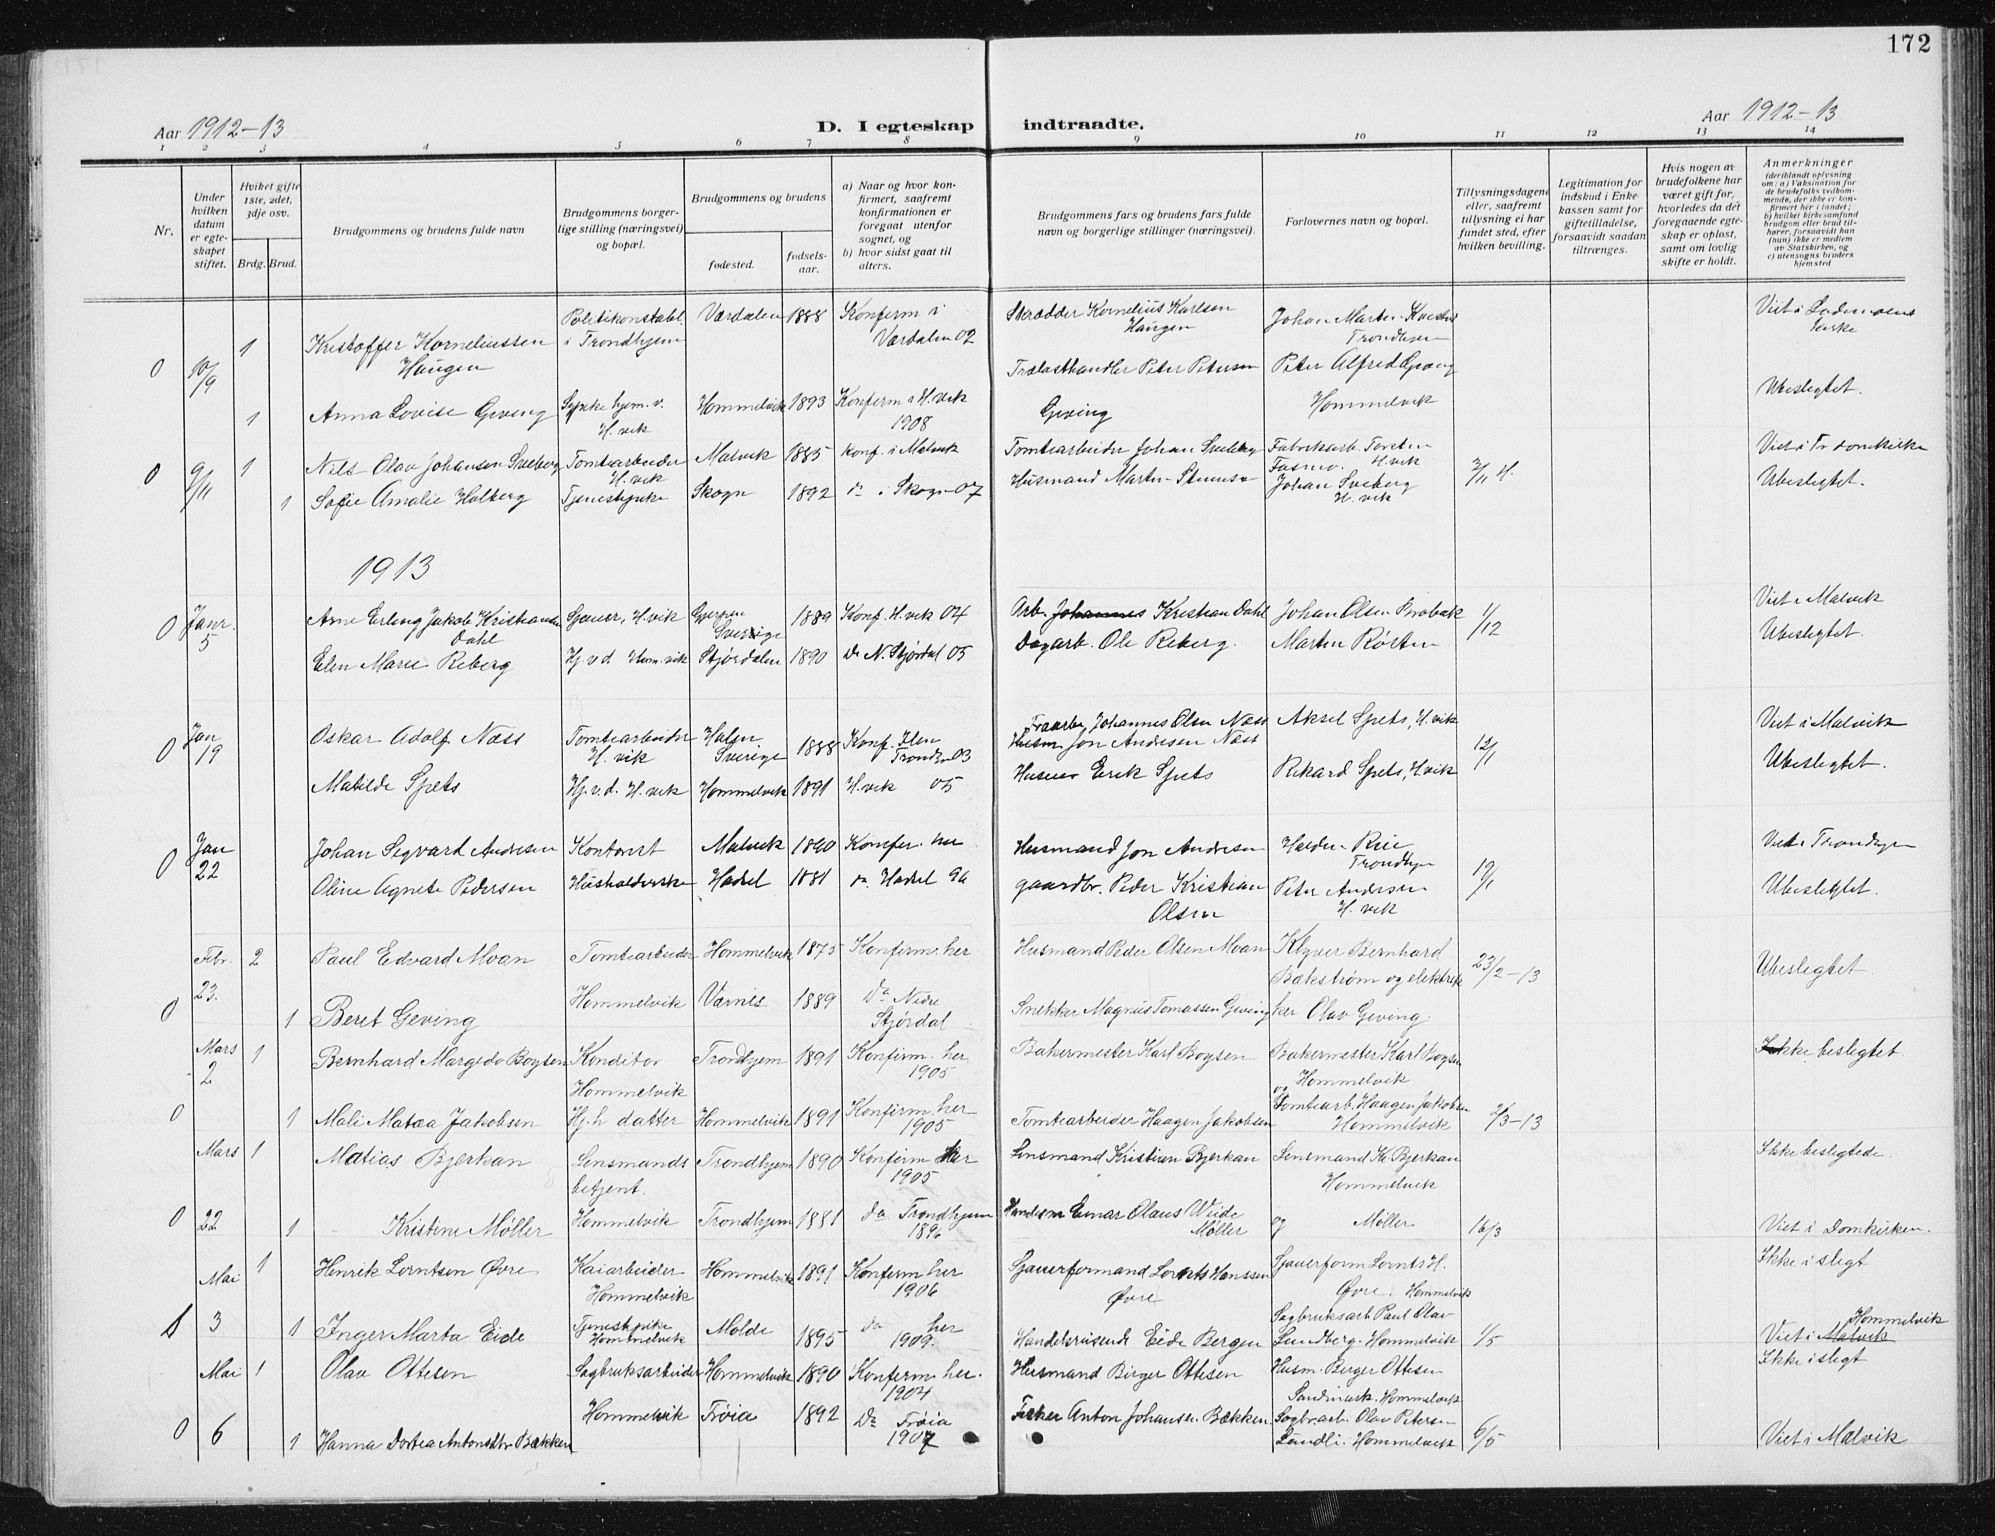 172
Aar 1912-13
D. I egteskap
indtraadte.
Aar 1912-13
1 2 3 4 5 6 7 8 9 10 11 12 13 14
Nr.
Under hvilken datum er egteskapet stiftet.
Hviket gifte 1ste, 2det, 3dje osv.
Brdg. Brud.
Brudgommens og brudens fulde navn
Brudgommens borgerlige stilling (næringsvei) og bopæl.
Brudgommens og brudens
fødested.
fødselsaar.
a) Naar og hvor konfirmert, saafremt konfirmationen er foregaat utenfor sognet, og
b) hvor sidst gaat til alters.
Brudgommens fars og brudens fars fulde navn og borgerlige stillinger (næringsvei).
Forlovernes navn og bopæl.
Tillysningsdagene eller, saafremt tillysning ei har fundet sted, efter hvilken bevilling.
Legitimation for indskud i Enkekassen samt for giftetilladelse, forsaavidt saadan tiltrænges.
Hvis nogen av brudefolkene har været gift før, hvorledes da det foregaaende egteskap er opløst, samt om lovlig skifte er holdt.
Anmerkninger
(deriblandt oplysning om: a) Vaksination for de brudefolks vedkommende, der ikke er konfirmert her i landet; b) hvilket kirkesamfund brudgom eller brud tilhører, forsaavidt han (hun) ikke er medlem av Statskirken, og c) utensogns bruders hjemsted
0 10/9 1 Kristoffer Korneliussen Haugen Politikonstabl. i Trondhjem Værdalen 1888 Konferm i Værdalen 02 Skrædder Kornelius Karlsen Haugen Johan Martin Trondhjem Viet i
1 Anna Lovise Geving H. vik Hommelvik 1893 Konferm i H. vik 1908 Trælasthandler Peter Petersen Geving Peter Alfred Hommelvik Ubeslegtet.
0 9/11 1 Nils Olav Johansen Sveberg Tomtearbeider H. vik Malvik 1885 Konf. i Malvik Tomtearbeider Johan Sveberg Fabrikarb. Torsten H. vik 3/11 H. Viet i Tr domkirke
1 Sofie Amalie Halberg Tjenestepike Skogn 1892 do i Skogn 07 Husmand Martin Johan Sveberg H. vik Ubeslegtet.
1913
0 Janr. 5 Arne Erling Jakob Kristiansen Dahl Sjauer, H. vik Sverige 1889 Konf. H. vik 04 Arb. Johannes Kristian Dahl Johan Olsen Brobak 1/12 Viet i Malvik
Elen Marie Reberg Hj. v. d. Hom. vik Stjørdalen 1890 Do N. Stjørdal 05 Dagarb. Ole Reberg. Martin Rosten Ubeslegtet.
0 Jan 19 Oskar Adolf Næss Tomtearbeider H. vik Sverige 1888 Konf. Ilen Trondhj. 03 Johannes Olsen Næss Husm Jon Andresen Næss Aksel Spets, H. vik 12/1 Viet i Malvik
Matilde Spets Hj. v. d. H. vik Hommelvik 1891 H. vik 05 Erik Spets Rikard Spets, H. vik Ubeslegtet.
0 Jan 22 Johan Segvard Andresen Kontorist Malvik 1890 Konfer. her Husmand Jon Andresen Halden Rise Trondhjem 19/1 Viet i Trondhjem
Oline Agnete Pedersen Husholderske Hadsel 1881 do Hadsel 96 gaardbr. Peder Kristian Olsen Peter Andersen H. vik Ubeslegtet.
0 Febr. 23. 2 Paul Edvard Moan Tomtearbeider Hommelvik Hommelvik 1875 Konferm. her Husmand Peder Olsen Moan Klyver Bernhard Bækstrøm og elektriker Olav Geving. 23/2-13 Ubeslegtet
1 Beret Geving Værnes 1889 Do Nedre Stjørdal Snekker Magnus Tomassen Geving
0 Mars 2 1 Bernhard Margido Boysen Konditor Hommelvik Trondhjem 1891 Konfirm. her 1905 Bakermester Karl Boysen Bakermester Karl Boysen Hommelvik Ikke beslegtet.
1 Mali Matea Jakobsen Hj. h datter Hommelvik 1891 Konfirm. her 1905 Tomtearbeider Haagen Jakobsen og Tomtearb. Haagen Jakobsen Hommelvik 2/3-13
0 Mars 22 1 Matias Bjerkan Lensmandsbetjent. Hommelvik Trondhjem 1890 Konfirm her 1905 Lensmand Kristian Bjerkan Lensmand K. Bjerkan Hommelvik Ikke beslegtede.
1 Kristine Møller Trondhjem 1881 do Trondhjem 1896 Einar Olaus Wide Møller og Møller 16/3 Viet i Domkirken.
1 Mai 3 1 Henrik Lorntsen Øvre Kaiarbeider Hommelvik Hommelvik 1891 Konferm her 1906 Sjauerformand Lornts Hanssen Øvre Sjauerform Lornts H. Øvre. Hommelvik Ikke i slegt
1 Inger Marta Eide Tjenestpike Hommelvik Molde 1895 do her 1909. Handelsreisende Eide Bergen Sagbruksarb Paul Olav Lundberg. Hommelvik 1/5 Viet i Malvik Hommelvik
0 Mai 6 1 Olav Ottesen Sagbruksarbeider Hommelvik Hommelvik 1890 Konferm her. 1904 Husmand Birger Ottesen Husm. Berger Ottesen Sandmark. Hommelvik Ikke i slegt
1 Hanna Dortea Antonsdtr Bækken Frøia 1892 Do Frøia 1907 Fisker Anton Johanser. Bækken Sagbr.arb. Olav Petersen Lundli. Hommelvik 6/5 Viet i Malvik